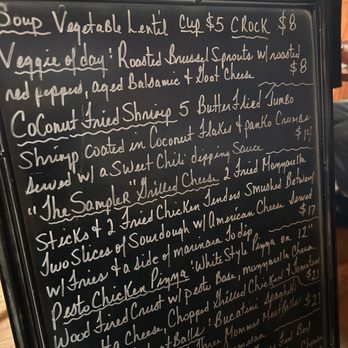 Soup Vegetable Lentil Cup $5 CROCK $8
Veggie of day: Roasted Brussel Sprouts w/ roasted
red peppers, aged Balsamic & Goat Cheese $8
Coconut Fried Shrimp 5 Butter Fried Jumbo
Shrimp coated in Coconut Flakes & Panko Crumbs
Served w/ a Sweet Chili dipping Sauce $14
"The Sampler" Grilled Cheese 2 Fried Mozzarella
Sticks & 2 Fried Chicken Tenders Smushed Between
Two Slices of Sourdough w/ American Cheese Served
w/ Fries & a side of marinara To dip $17
Pesto Chicken Pizza: White Style Pizza on 12"
Wood Fired Crust w/ pesto Base, mozzarella Cheese
Cheese, Chopped Grilled Chicken & Tomatoes $21
Balls: Bucatini Spaghetti
Three Mommas MeatBalls $21
Beef